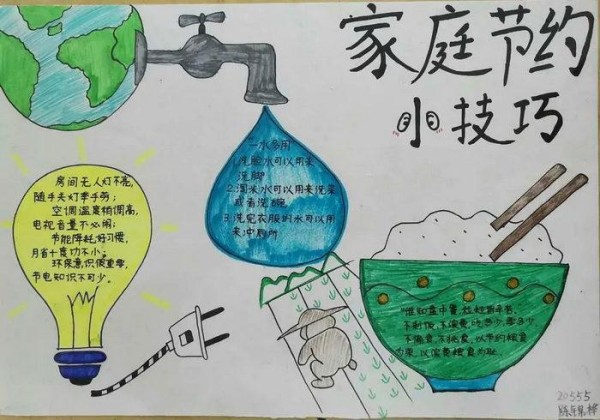 家庭节约
小技巧
一水多用
1.洗脸水可以用来
洗脚
2.淘米水可以用来洗菜
或者洗碗
3.洗完衣服的水可以用
来冲厕所
房间无人灯不亮,
随手关灯举手劳;
空调温度稍调高,
电视音量不必闹;
节能降耗好习惯,
月省十度功不小;
环保意识很重要,
节电知识不可少。
"谁知盘中餐,粒粒皆辛苦"
不剩饭,不浪费,吃多少,拿多少,
不偏食,不挑食,以节约粮食
为荣,以浪费粮食为耻。
20555
陈